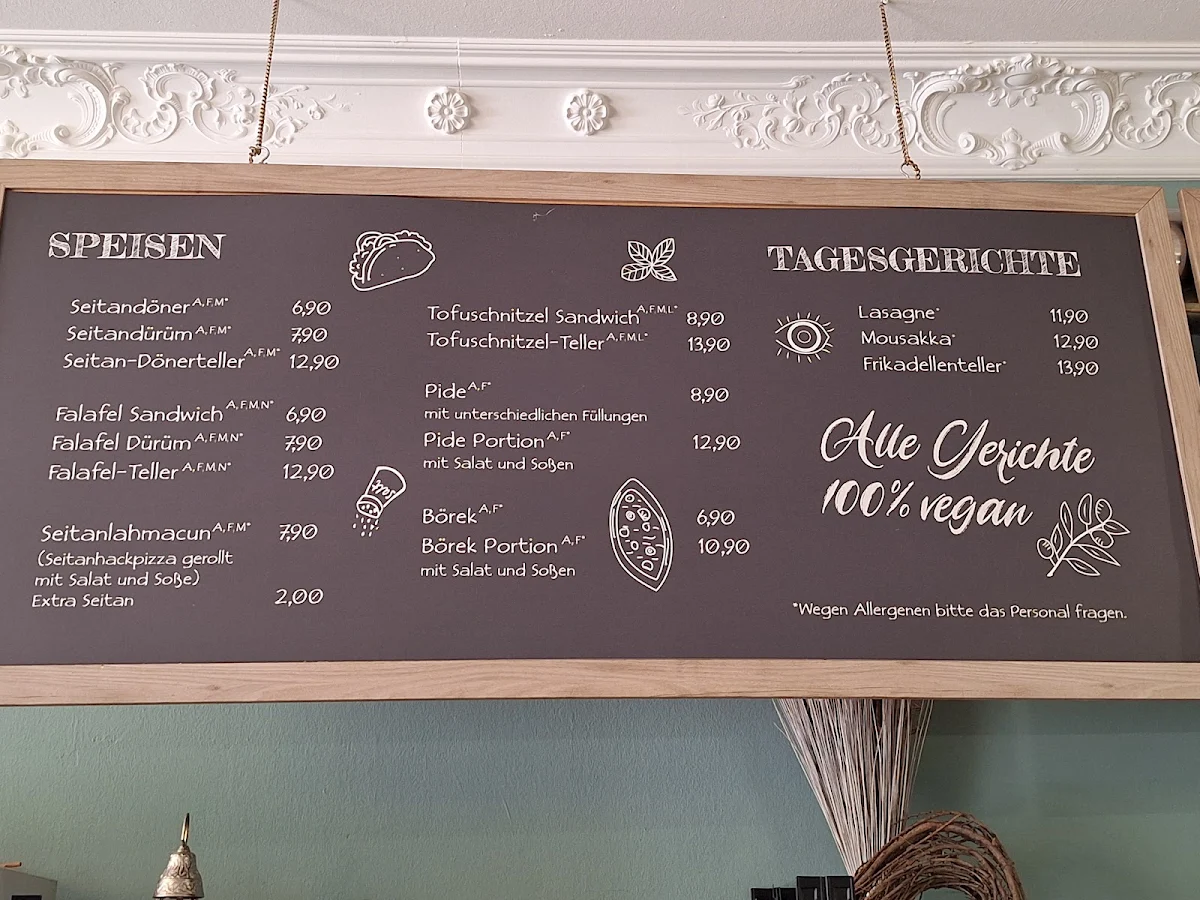 SPEISEN
Seitandöner A,F,M* 6,90
Seitandürüm A,F,M* 7,90
Seitan-Dönerteller A,F,M* 12,90
Falafel Sandwich A,F,M,N* 6,90
Falafel Dürüm A,F,M,N* 7,90
Falafel-Teller A,F,M,N* 12,90
Seitanlahmacun A,F,M* 7,90
(Seitanhackpizza gerollt
mit Salat und Soße)
Extra Seitan 2,00
Tofuschnitzel Sandwich A,F,M,L* 8,90
Tofuschnitzel-Teller A,F,M,L* 13,90
Pide A,F* 8,90
mit unterschiedlichen Füllungen
Pide Portion A,F* 12,90
mit Salat und Soßen
Börek A,F* 6,90
Börek Portion A,F* 10,90
mit Salat und Soßen
TAGESGERICHTE
Lasagne* 11,90
Mousakka* 12,90
Frikadellenteller* 13,90
Alle Gerichte
100% vegan
*Wegen Allergenen bitte das Personal fragen.